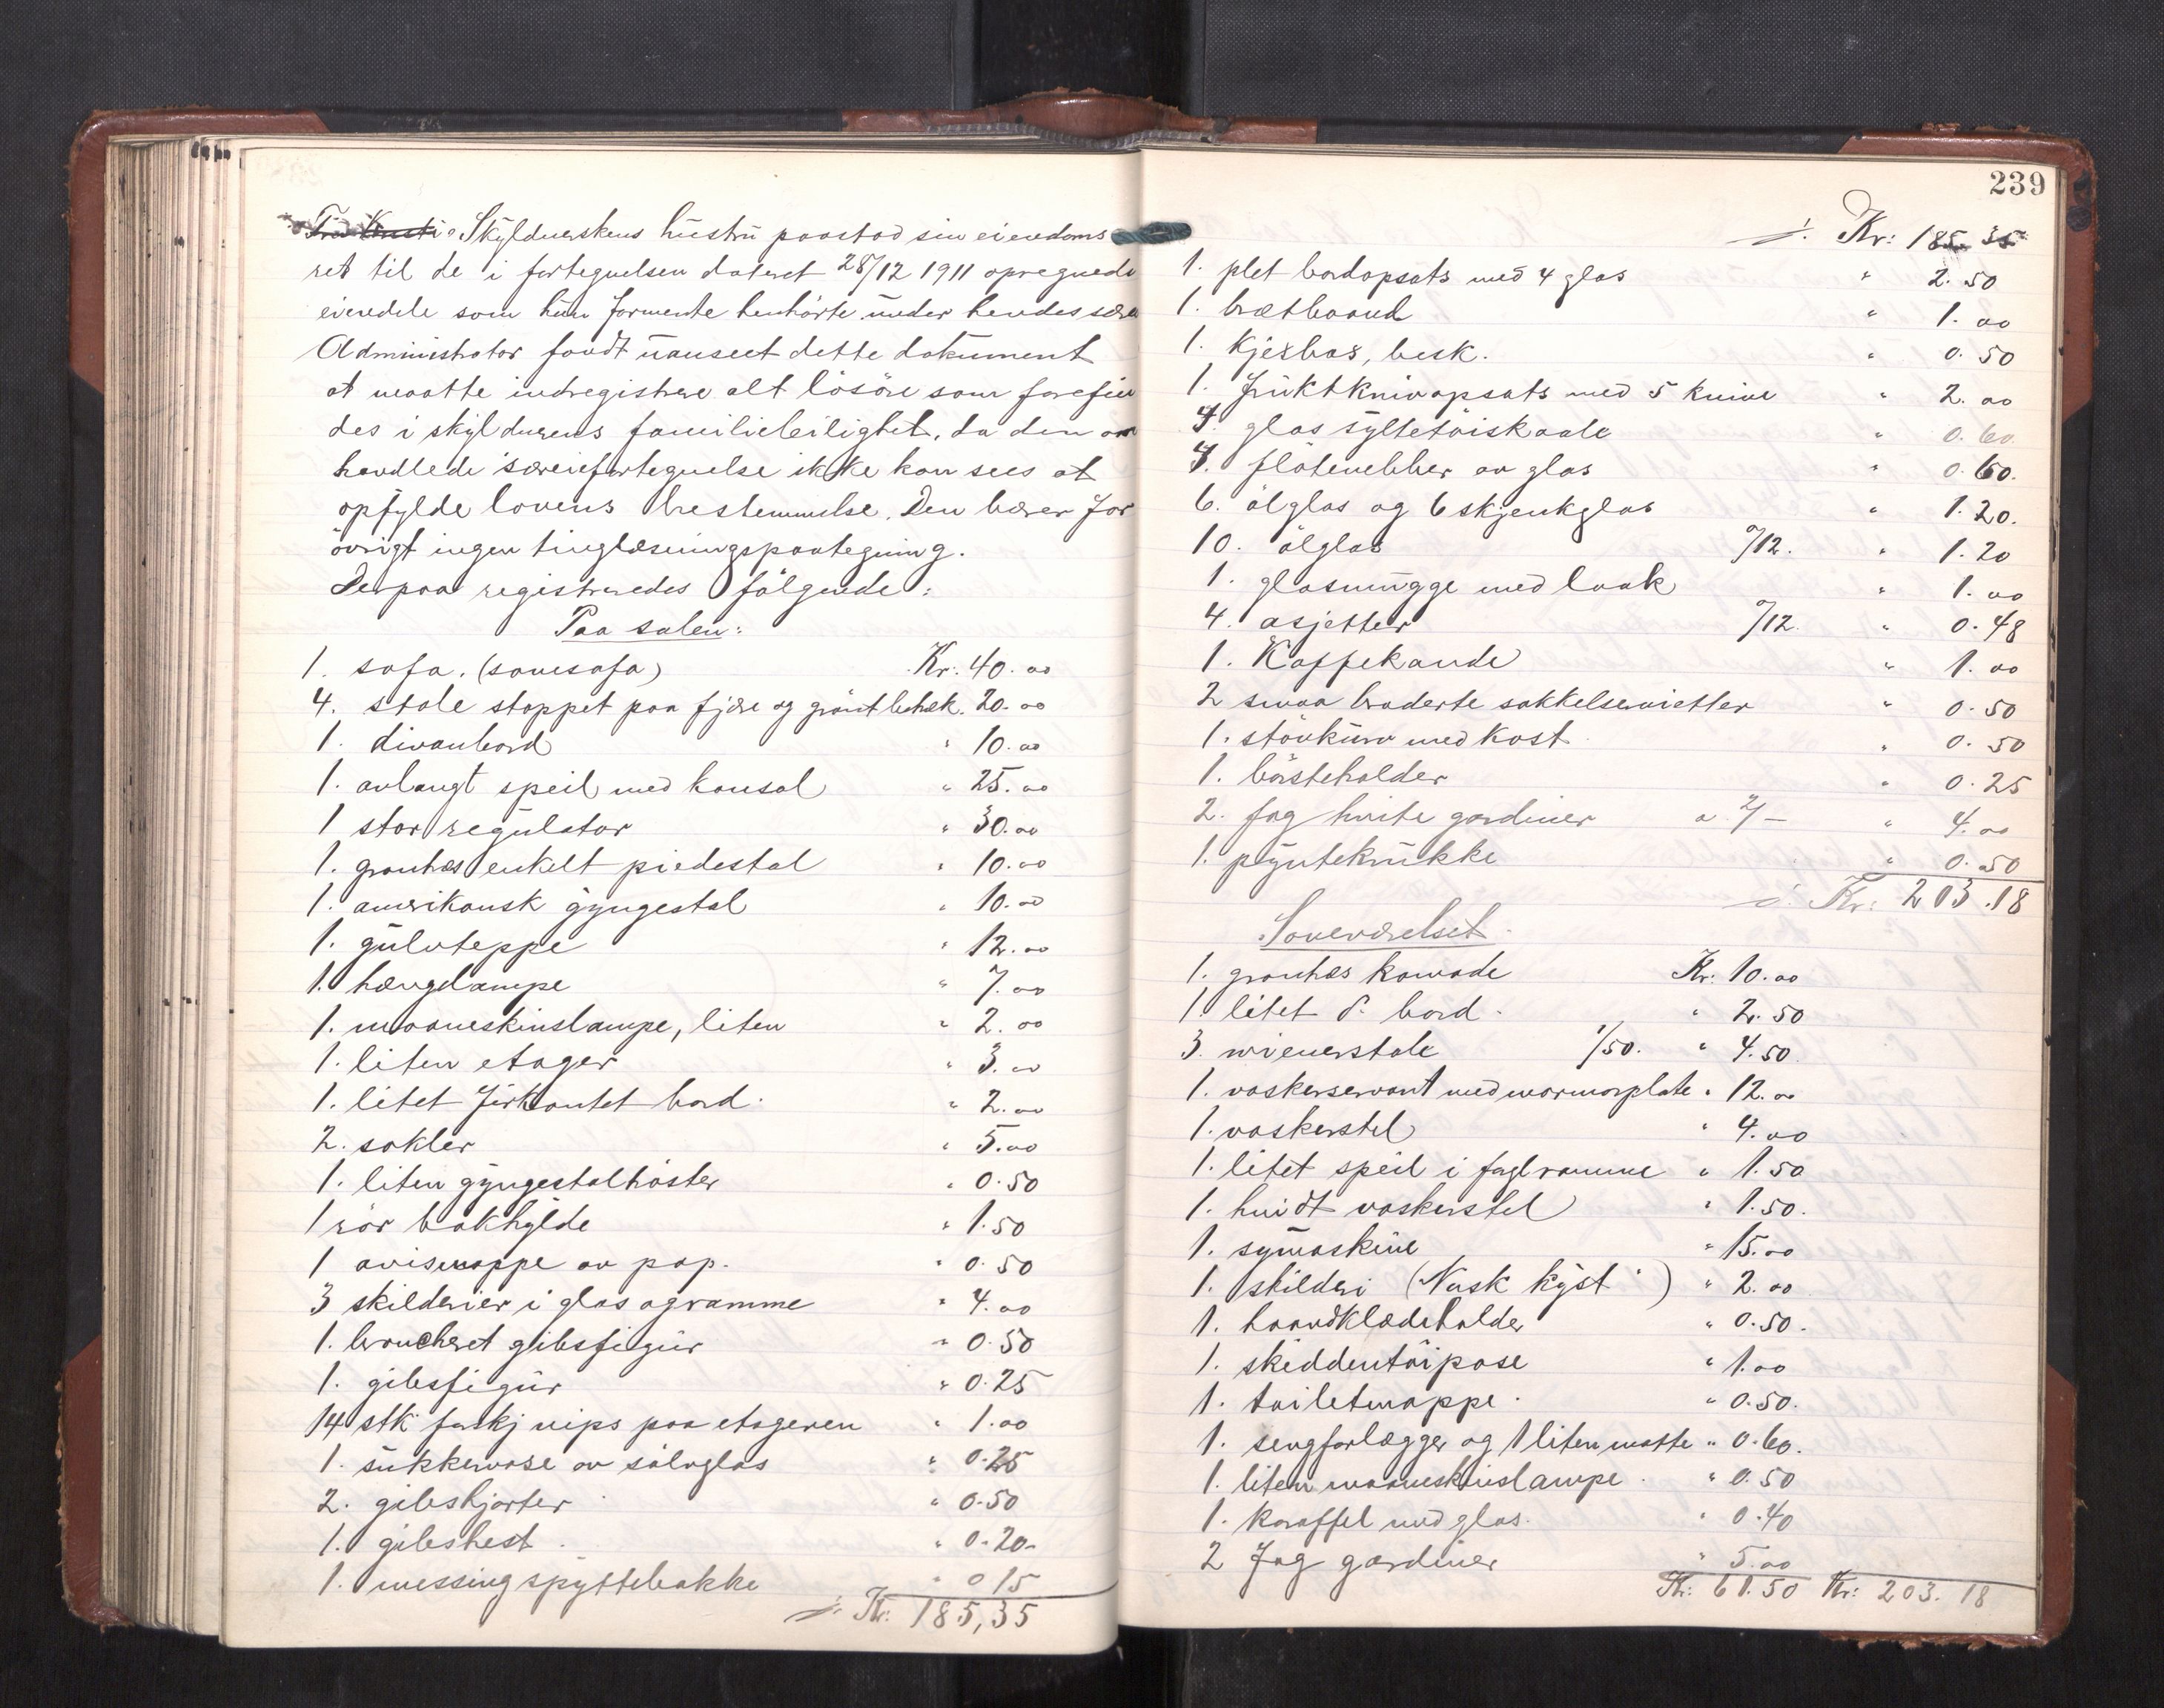 Skyldnerskens hustru paastod sin eiendoms
ret til de i fortegnelsen dateret 28/12 1911 opregnede
eiendele som hun formente henhörte under hendes særei
Administrator fandt uanseet dette dokument
at maatte indregistrere alt lösöre som forefin
des i skyldnerens familieleilighet, da den om
handlede særeiefortegnelse ikke kan sees at
opfylde lovens bestemmelse. Den bærer for
övrigt ingen tinglæsningspaategning.
Derpaa registreredes fölgende:
Paa salen:
1. sofa. (sovesofa) Kr: 40.00
4. stole stoppet paa fjære og grönt betræk. 20.00
1. divanbord " 10.00
1. avlangt speil med konsol " 25.00
1 stor regulator " 30.00
1. granhæs enkelt piedestal " 10.00
1. amerikansk gyngestol " 10.00
1. gulvteppe " 12.00
1. hængelampe " 7.00
1. maaneskinslampe, liten " 2.00
1. liten etager " 3.00
1. litet firkantet bord. " 2.00
2. sokler " 5.00
1. liten gyngestolhöster " 0.50
1 rör bokhylde " 1.50
1 avismappe av pap. " 0.50
3 skilderier i glas og ramme " 4.00
1. broncheret gibsfigur " 0.50
1. gibsfigur " 0.25
14 stk forskj nips paa etageren " 1.00
1. sukkervase av sölvglas " 0.25
2. gibshjorter " 0.50
1. gibshest. " 0.20
1. messing spyttebakke " 0 15
Kr: 185,35
239
Kr: 185.35
1. plet bordopsats med 4 glas " 2.50
1. brætbaand " 1.00
1. Kjeksbos, besk. " 0.50
1. fruktknivopsats med 5 knive " 2.00
4. glas syltetöiskaale " 0.60
4. flötenebber av glas " 0.60.
6. ölglas og 6 skjenkglas " 1.20.
10. ölglas "/12. " 1.20
1. glasmugge med laak " 1.00
4. asjetter "/12. " 0.48
1. Kaffekande " 1.00
2 smaa broderte sokkelservietter " 0.50
1. stövkurv med kost " 0.50
1. börsteholder " 0.25
2. fag hvite gardiner a 2/- " 4.00
1. pyntekrukke " 0.50
Kr: 203.18
Soveværelset.
1. granhæs komode Kr: 10.00
1 litet do bord. " 2.50
3. wienerstole 1/50. " 4.50.
1. vaskerservant med marmorplate " 12.00
1. vaskerstel " 4.00
1. litet speil i faglramme " 1.50
1. hvidt vaskerstel " 1.50.
1. symaskine " 15.00
1. skilderi (Norsk kyst) " 2.00
1. haandklædeholder " 0.50.
1. skiddentöipose " 1.00
1. toiletmappe. " 0.50.
1. sengforlægger og 1 liten matte " 0.60.
1. liten maaneskinslampe. " 0.50
1. karaffel med glas. " 0.40
2 fag gardiner " 5.00
Kr: 61.50 Kr: 203.18